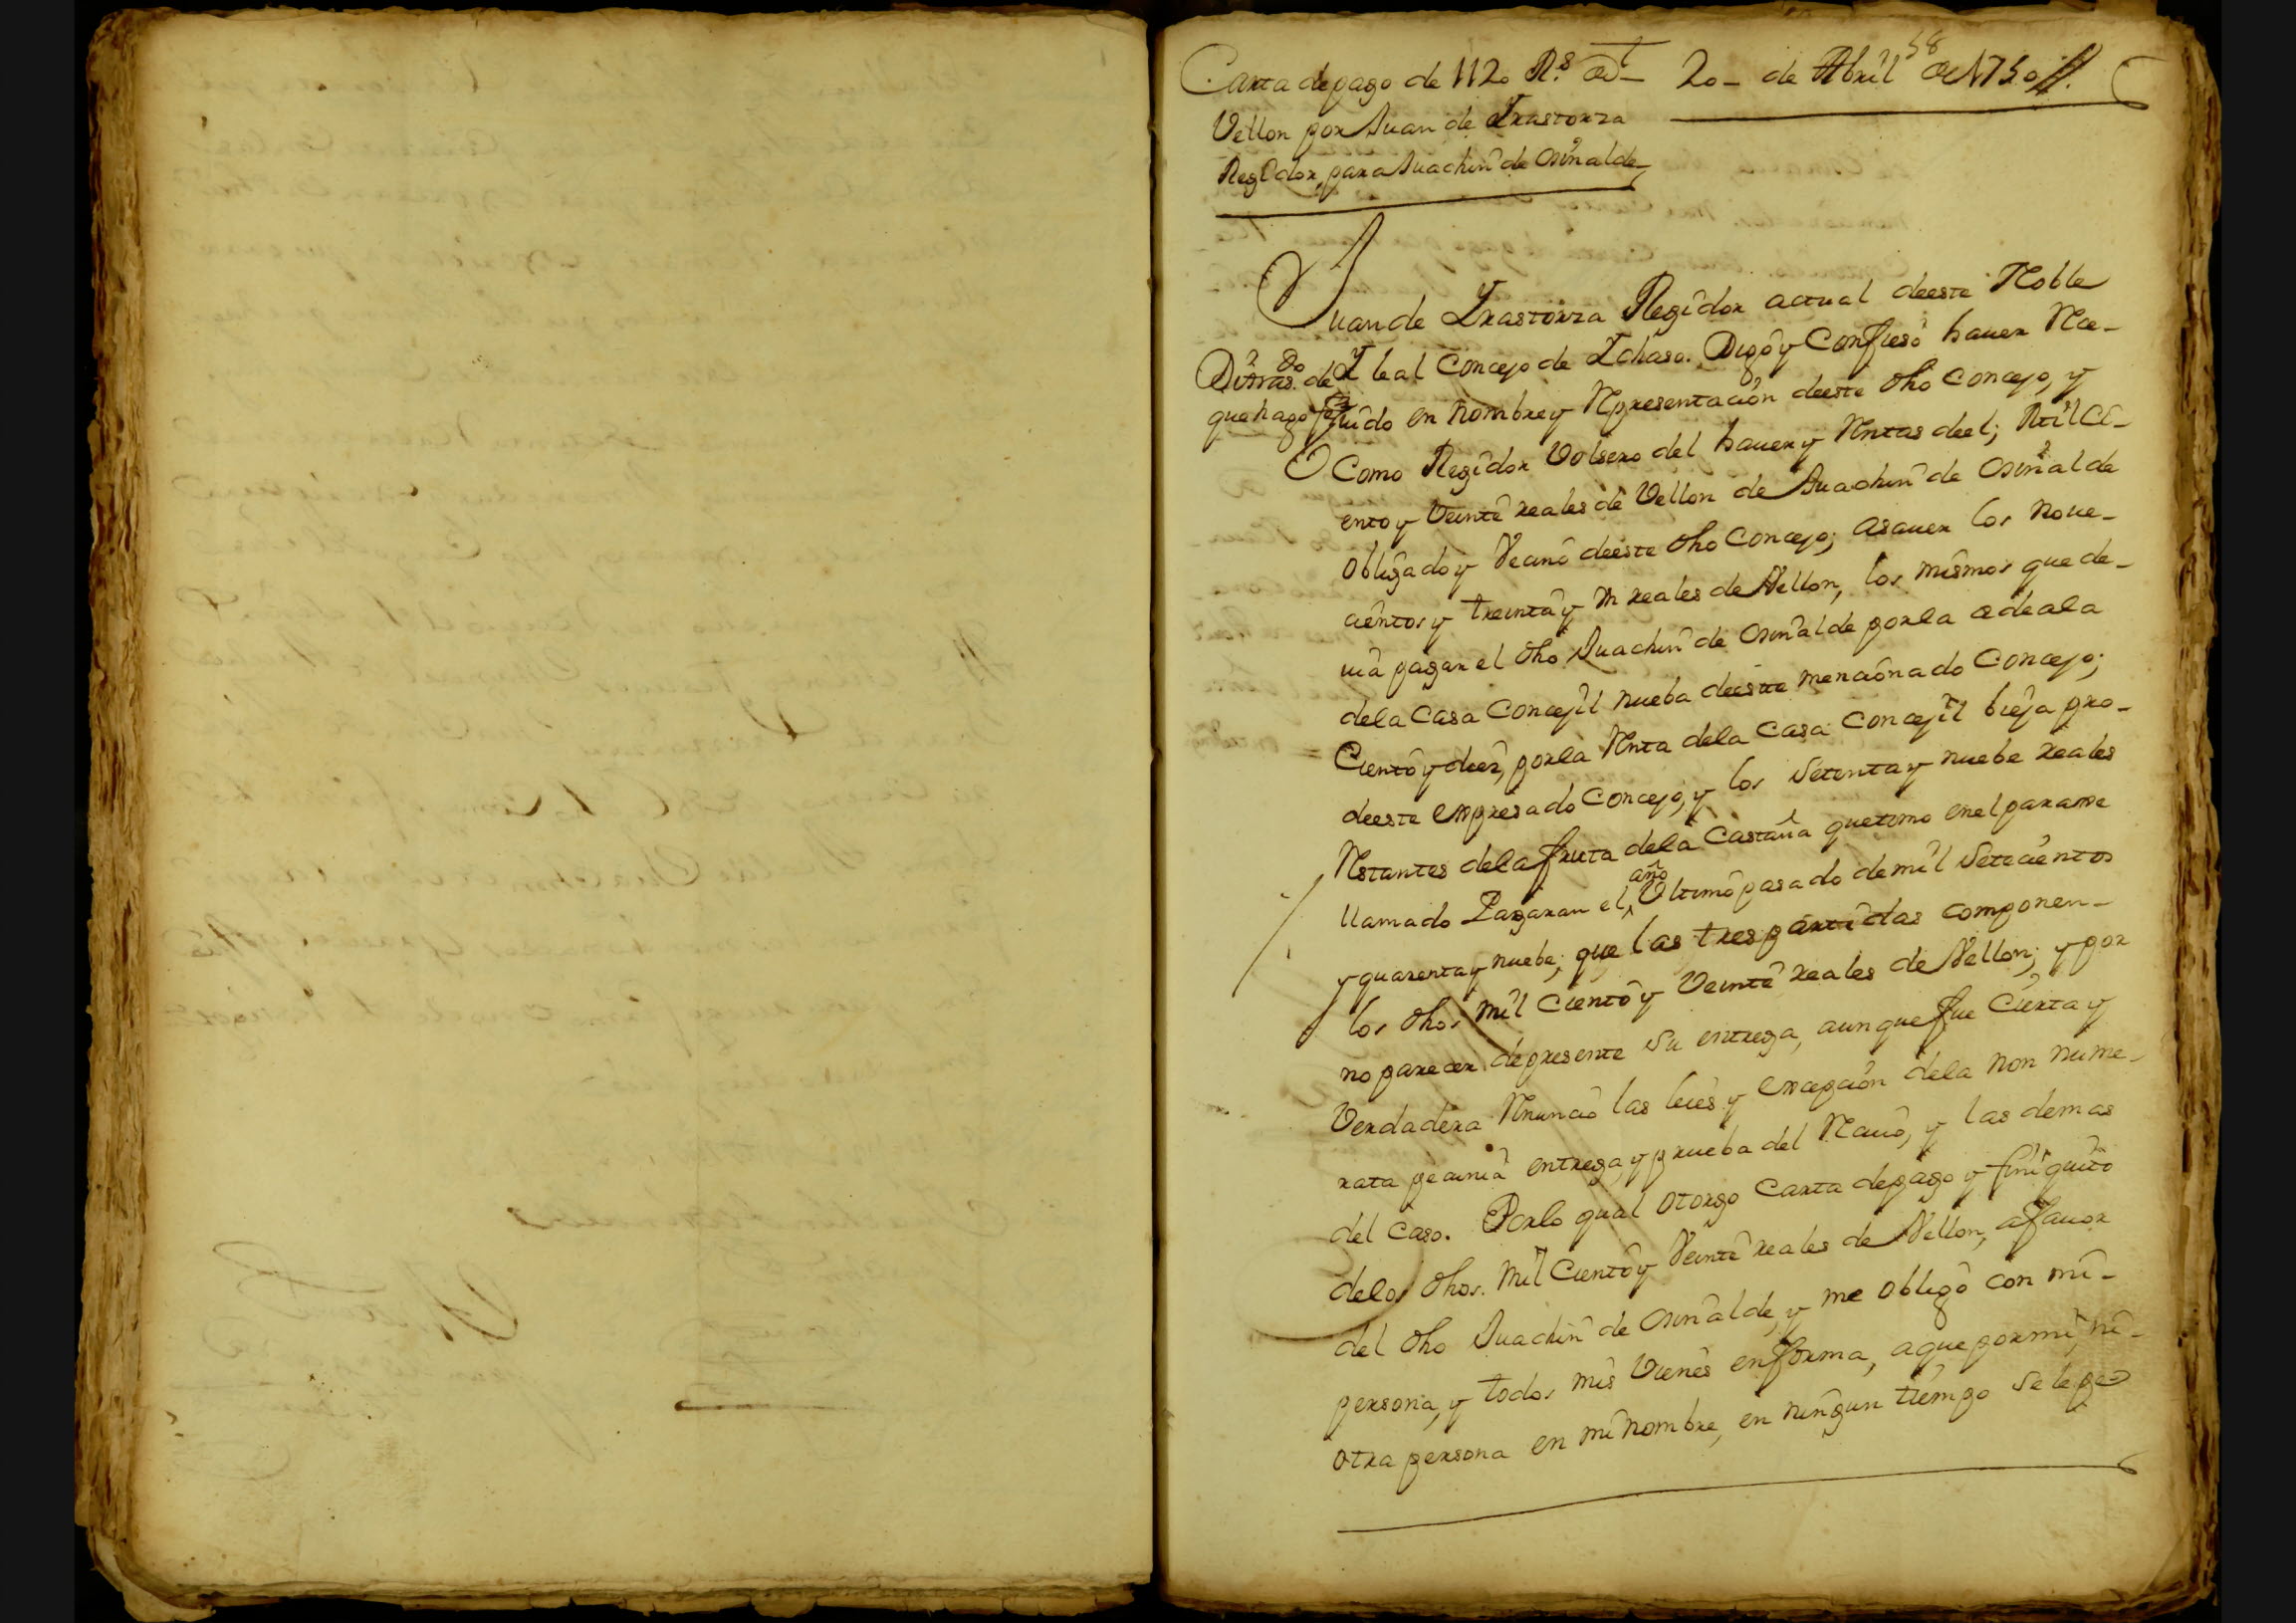 58
Carta de pago de 1120 R.s de
Vellon por Juan de Yrastorza
Regidor, para Juachin de Osinalde
20- de Abril de 1750 //.
Juan de Yrastorza Regidor actual deeste Noble
Y leal Concejo de Ychaso. Digo y Confieso hauer Rce-
uido en nombre y Rpresentación deeste dho Concejo, y
que hago fee
Como Regidor Volsero del hauer y Rntas deel; Mil Ci-
ento y Veinte reales de Vellon de Juachin de Osinalde
Obligado y Vecino deeste dho Concejo; asauer los noue-
cientos y treinta y un reales de Vellon, los mismos que de-
uia pagar el dho Juachin de Osinalde por la adeala
dela Casa Concejil nueba deeste mencionado Concejo;
Ciento y diez, por la Rnta dela Casa Concejil bieja pro-
deeste expresado Concejo, y los Setenta y nuebe reales
Rstantes dela fruta dela Castaña que tomo en el parage
llamado Zagaran el, año Vltimo pasado de mil Setecientos
y quarenta y nuebe; que las tres partidas componen-
los dhos mil Ciento y Veinte reales de Vellon; y por
no parecer depresente su entrega, aunque fue Cierta y
Verdadera Rnuncio las leies y excepción dela non nume-
rata pecunia entrega, y prueba del Rciuo, y las demas
del caso. Porlo qual otorgo Carta depago y finiquito
delos dhos. Mil Ciento y Veinte reales de Vellon, afauor
del dho Juachin de Osinalde, y me obligo con mi-
persona, y todos mis Vienes enforma, aque por mi, ni-
otra persona en mi nombre, en ningun tiempo se le pe